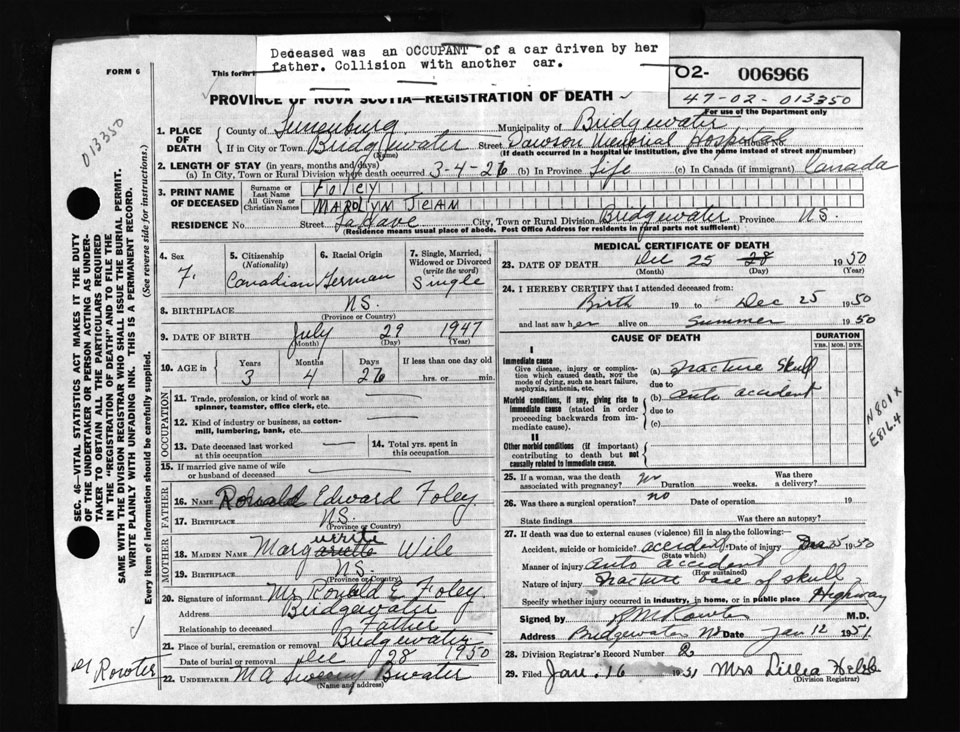 Deceased was an OCCUPANT of a car driven by her
father. Collision with another car.
FORM 6
This form i
O2- 006966
47-02-013350
For use of the Department only
PROVINCE OF NOVA SCOTIA—REGISTRATION OF DEATH
013350
1. PLACE OF DEATH
County of Lunenburg Municipality of Bridgewater
If in City or Town. Bridgewater Street Dawson Memorial Hospital House No.
(Name) (If death occurred in a hospital or institution, give the name instead of street and number)
2. LENGTH OF STAY (in years, months and days)
(a) In City, Town or Rural Division where death occurred 3-4-26 (b) In Province life (c) In Canada (if immigrant) Canada
3. PRINT NAME OF DECEASED
Surname or Last Name Foley
All Given or Christian Names MAROLYM JEAN
RESIDENCE No. Street LaHave City, Town or Rural Division Bridgewater Province N.S.
(Residence means usual place of abode. Post Office Address for residents in rural parts not sufficient)
4. Sex F.
5. Citizenship (Nationality) Canadian
6. Racial Origin German
7. Single, Married, Widowed or Divorced (write the word) Single
8. BIRTHPLACE N.S.
(Province or Country)
9. DATE OF BIRTH July 29 1947
(Month) (Day) (Year)
10. AGE in Years Months Days If less than one day old
3 4 26 hrs. or min.
OCCUPATION
11. Trade, profession, or kind of work as spinner, teamster, office clerk, etc.
12. Kind of industry or business, as cotton-mill, lumbering, bank, etc.
13. Date deceased last worked at this occupation
14. Total yrs. spent in this occupation.
15. If married give name of wife or husband of deceased
FATHER
16. NAME Ronald Edward Foley
17. BIRTHPLACE N.S.
(Province or Country)
MOTHER
18. MAIDEN NAME Margurrite Wile
19. BIRTHPLACE N.S.
(Province or Country)
20. Signature of informant Mr Ronald E Foley
Address Bridgewater
Relationship to deceased Father
21. Place of burial, cremation or removal Bridgewater
Date of burial or removal Dec 28 1950
22. UNDERTAKER M A Sweeny Bwater
(Name and address)
MEDICAL CERTIFICATE OF DEATH
23. DATE OF DEATH Dec 25 28 1950
(Month) (Day) (Year)
24. I HEREBY CERTIFY that I attended deceased from:
Birth 19 to Dec 25 1950
and last saw her alive on Summer 1950
CAUSE OF DEATH DURATION
YRS. MOS. DYS.
I
Immediate cause
Give disease, injury or complication which caused death, NOT the mode of dying, such as heart failure, asphyxia, asthenia, etc.
(a) Fracture Skull
due to
Morbid conditions, if any, giving rise to immediate cause (stated in order proceeding backwards from immediate cause).
(b) auto accident
due to
(c)
II
Other morbid conditions (if important) contributing to death but not causally related to immediate cause.
N801X
E816.4
25. If a woman, was the death associated with pregnancy? no Duration weeks. Was there a delivery?
26. Was there a surgical operation? no Date of operation 19
State findings Was there an autopsy?
27. If death was due to external causes (violence) fill in also the following:
Accident, suicide or homicide? accident Date of injury Dec 25 1950
(State which)
Manner of injury auto accident
(How sustained)
Nature of injury Fracture base of skull
Specify whether injury occurred in industry, in home, or in public place Highway
Signed by M.D.
Address Bridgewater NS Date Jan 12 1951
28. Division Registrar's Record Number 2
29. Filed Jan. 16 1951 Mrs Lillia Hebb
(Division Registrar)
SEC. 46—VITAL STATISTICS ACT MAKES IT THE DUTY
OF THE UNDERTAKER OR PERSON ACTING AS UNDERTAKER TO OBTAIN ALL THE PARTICULARS REQUIRED
IN THE "REGISTRATION OF DEATH" AND TO FILE THE
SAME WITH THE DIVISION REGISTRAR WHO SHALL ISSUE THE BURIAL PERMIT.
WRITE PLAINLY WITH UNFADING INK. THIS IS A PERMANENT RECORD.
Every item of information should be carefully supplied. (See reverse side for instructions.)
Dr Rowter